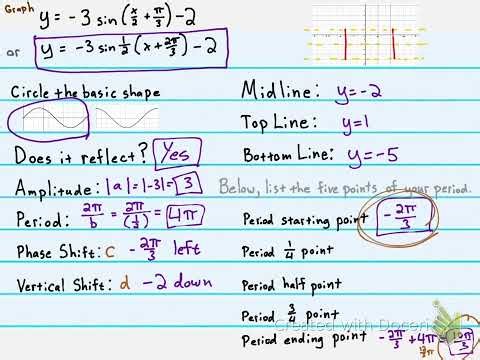 Graph
y = -3 sin(x/2 + π/3) - 2
or y = -3 sin 1/2 (x + 2π/3) - 2
Circle the basic shape
Does it reflect? Yes
Amplitude: |a| = |-3| = 3
Period: 2π/b = 2π/(1/2) = 4π
Phase Shift: c -2π/3 left
Vertical Shift: d -2 down
Midline: y=-2
Top Line: y=1
Bottom Line: y=-5
Below, list the five points of your period.
Period starting point -2π/3
Period 1/4 point
Period half point
Period 3/4 point
Created with Doceri
Period ending point -2π/3 + 4π = 10π/3
12π/3